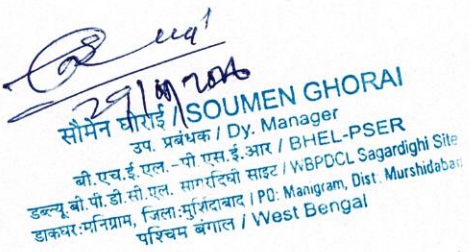 सौमेन घोराई / SOUMEN GHORAI
उप. प्रबंधक / Dy. Manager
बी.एच.ई.एल. -पी.एस.ई.आर / BHEL-PSER
डब्ल्यू.बी.पी.डी.सी.एल. सागरदिघी साइट / WBPDCL Sagardighi Site
डाकघर:मनिग्राम, जिला:मुर्शिदाबाद / PO: Manigram, Dist. Murshidabad
पश्चिम बंगाल / West Bengal